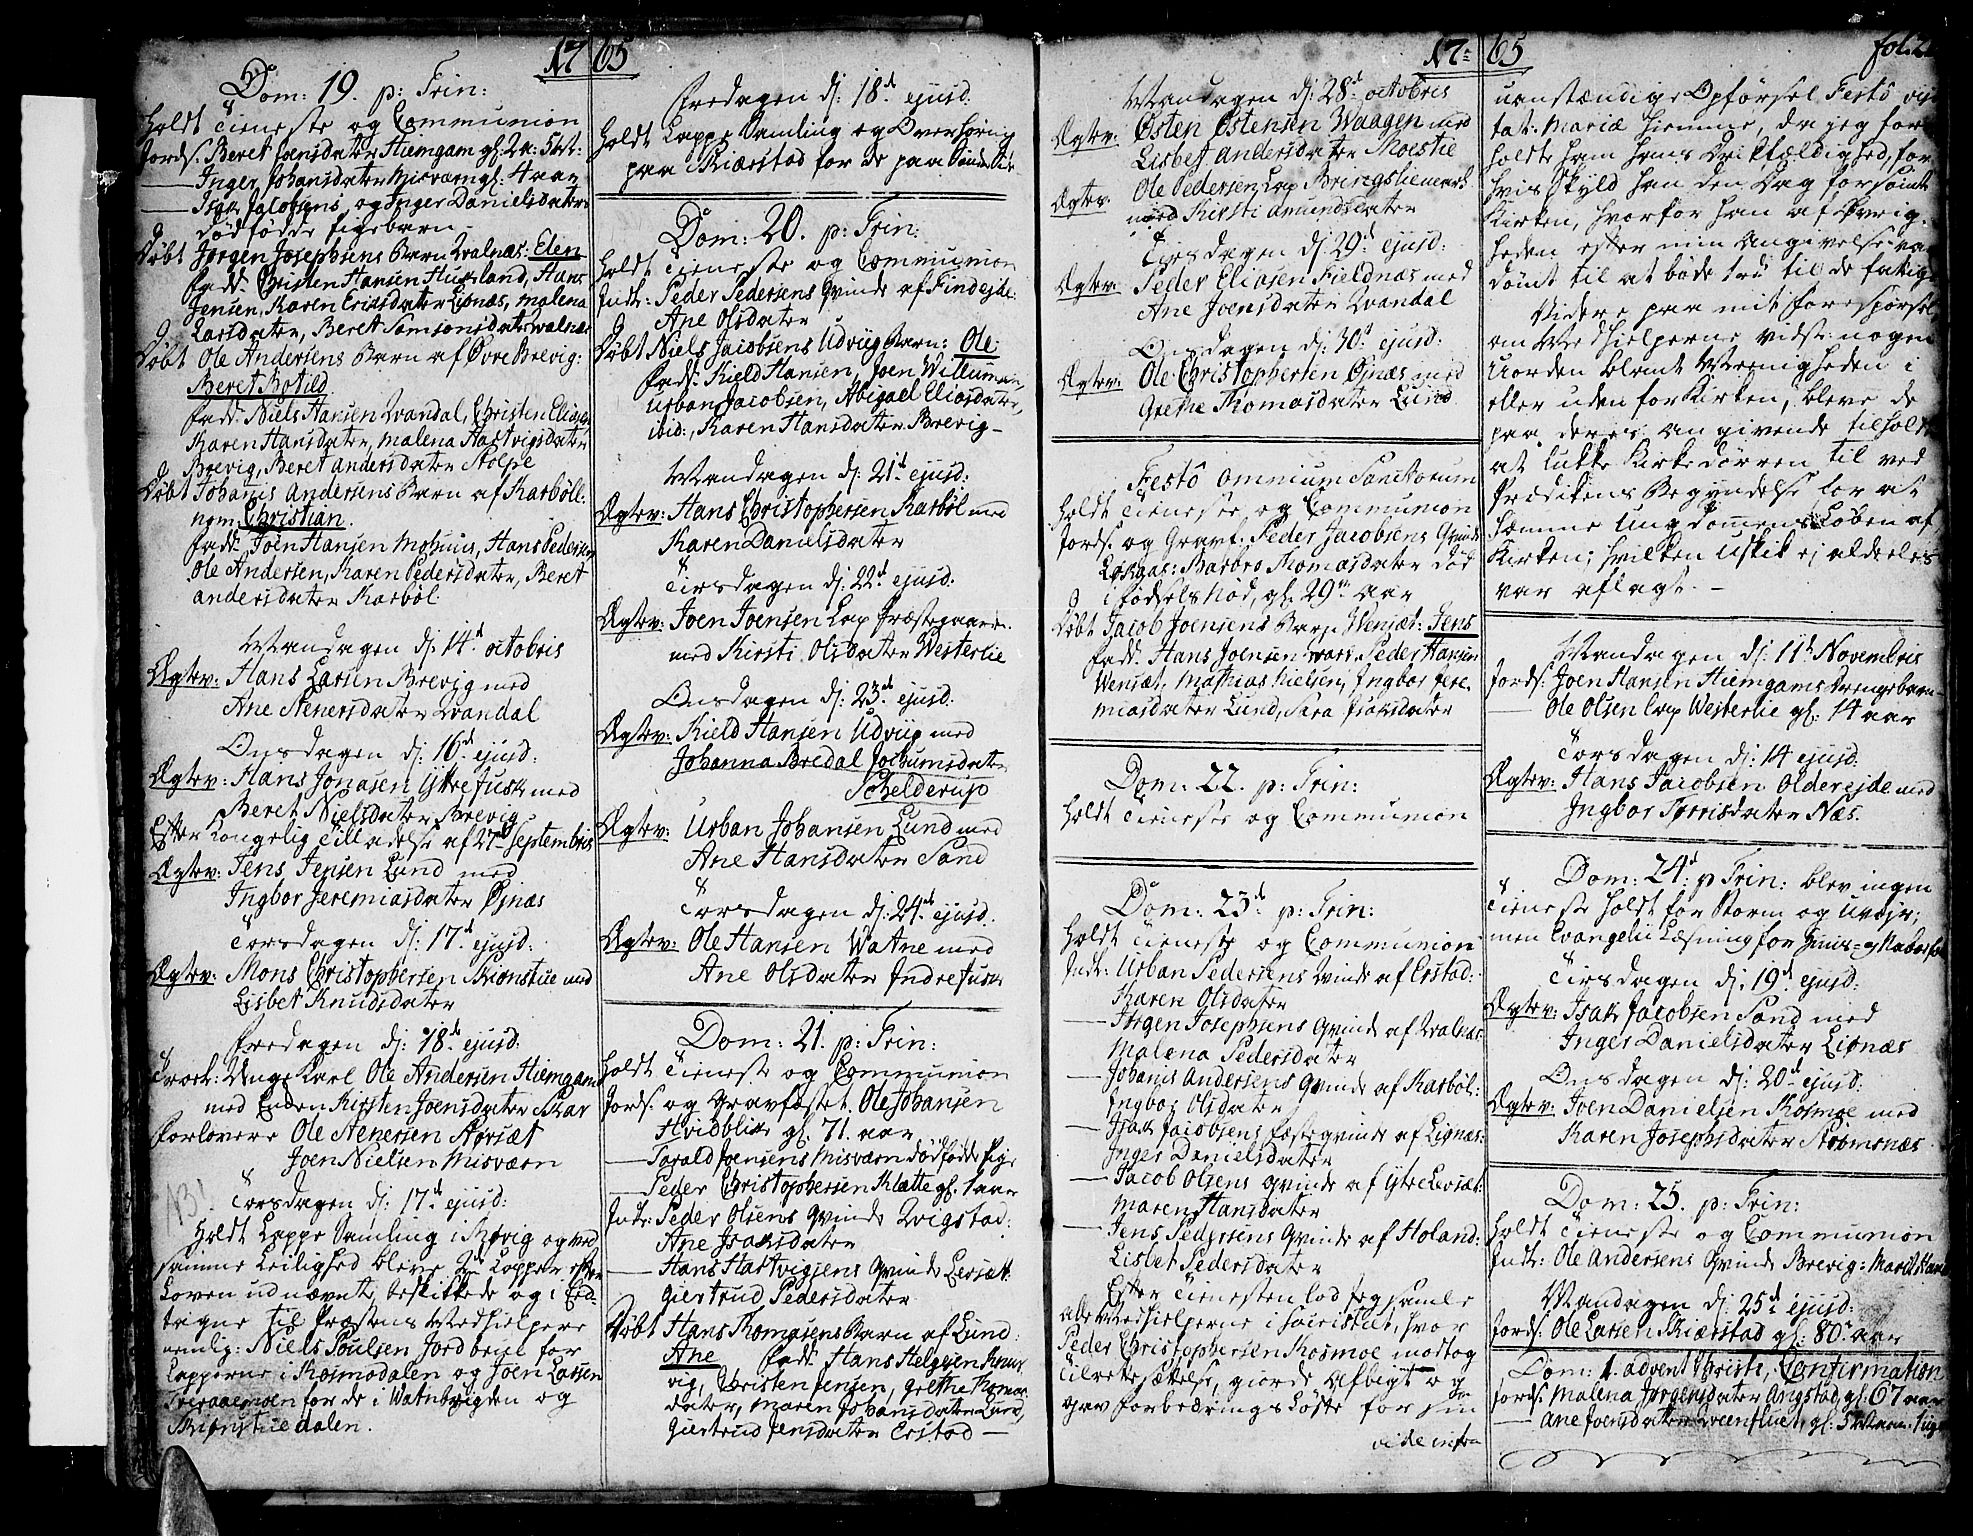 1765
Dom: 19. p: Trin:
Holdt Tieneste og Communion
Jords: Beret Joensdater Hiemgam gl: 2 a: 5 M:
— Inger Johansdater Misværn gl: 4 aar
— Isak Jacobsens og Inger Danielsdaters
dødfødde Pigebarn
Døbt Jørgen Josephsens Barn Qvalnæs: Elen
fadd: Christen Hansen Huusland, Hans
Jensen, Karen Ericsdater Lignæs, Malena
Larsdater, Beret Samsonsdater Qvalnæs
Døbt Ole Andersens Barn af Øvre Brevig:
Beret Botild
fadd: Niels Hansen Qvandal, Christen Eliasen
Karen Hansdater, Malena Hartvigsdater
Brevig, Beret Andersdater Stolpe
Døbt Johanis Andersens Barn af Karbøll:
nom: Christian.
fadd: Joen Hansen Mohuus, Hans Pedersen
Ole Andersen, Karen Pedersdater, Beret
Andersdater Karbøl
Mandagen dj: 14d octobris
Ægtev: Hans Larsen Brevig med
Ane Stenersdater Qvandal
Onsdagen dj: 16d ejusd:
Ægtev: Hans Jonasen Yttrefusk med
Beret Nielsdater Brevig
Efter Kongelig Tilladelse af 27d Septembris
Ægtev: Jens Jensen Lund med
Ingbor Jeremiasdater Øjnæs
Torsdagen dj: 17d ejusd:
Ægtev: Mons Christophersen Skionstue med
Lisbet Knudsdater
Fredagen dj: 18d ejusd:
Trool: Unge Karl Ole Andersen Hiemgam
med Enken Kirsten Joensdater Skar
Forlovere Ole Stenersen Storsæt
Joen Nielsen Misværn
NB!
Torsdagen dj: 17d ejusd:
Holdt Lappe Samling i Røvig og ved
samme Leilighed bleve 2de Lapper efter
Loven udnævnt, beskikkede og i Eed-
tagne til Præstens Medhielpere
nemlig: Niels Poulsen Jordbrue for
Lapperne i Rosmodalen og Joen Larsen
for de i Watnbygden og
Skionstuedalen.
Fredagen dj: 18d ejusd:
Holdt Lappe Samling og Overhøring
paa Skiærstad for de paa
Dom: 20. p: Trin:
Holdt Tieneste og Communion
Indl: Peder Pedersens Qvinde af Findejde:
Ane Olsdater
Døbt Niels Jacobsens Udviig Barn: Ole
fadd: Kield Hansen, Joen Willumsen,
Urban Jacobsen, Abigael Eliasdater,
ibid:, Karen Hansdater Brevig —
Mandagen dj: 21d ejusd:
Ægtev: Hans Christophersen Karbøl med
Karen Danielsdater
Tirsdagen dj: 22d ejusd:
Ægtev: Joen Joensen Lap Præstegaarden
med Kirsti Olsdater Westerlie
Onsdagen dj: 23d ejusd:
Ægtev: Kield Hansen Udviig med
Johanna Bredal Jochumsdater
Schelderup
Ægtev: Urban Johansen Lund med
Ane Hansdater Sand
Torsdagen dj: 24d ejusd:
Ægtev: Ole Hansen Watne med
Ane Olsdater Indrefusk
Dom: 21. p: Trin:
Holdt Tieneste og Communion
Jords: og Gravfæstet. Ole Johansen
Hvidblik gl: 71. aar
— Tarald Joensens Misværn dødfødde Pige
— Peder Christophersen Klætte gl: 1 aar
Indl: Peder Olsens Qvinde Qvigstad:
Ane Isaksdater
— Hans Hartvigsens Qvinde Lersæt:
Giertrud Pedersdater
Døbt Hans Thomasens Barn af Lund:
Ane fadd: Hans Helgesen
vig, Christen Jensen, Grethe Thomas-
dater, Maren Johansdater Lund,
Giertrud Jensdater Erstad —
17:65
fol: 2
Mandagen dj: 28d octobris
Ægtev: Østen Østensen Waagen med
Lisbet Andersdater Moestie
Ægtev: Ole Pedersen Lap Bringsliemark
med Kirsti Amundsdater
Tirsdagen dj: 29d ejusd:
Ægtev: Peder Eliasen Fieldnæs med
Ane Joensdater Qvandal
Onsdagen dj: 30d ejusd:
Ægtev: Ole Christophersen Øjnæs med
Grethe Thomasdater Lund
Festô Omnium Sanctorum
Holdt Tieneste og Communion
Jords: og Gravf: Peder Jacobsens Qvinde
Løkgav: Barbro Thomasdater død
i fødsels Nød, gl: 29 aar
Døbt Jacob Joensens Barn Wensæt: Jens
fadd: Hans Joensen Peder Hansen
Wensæt, Mathias Nielsen, Ingbor Jere-
miasdater Lund, Sara Isaksdater
Dom: 22. p: Trin:
Holdt Tieneste og Communion
Dom: 23d p: Trin:
Holdt Tieneste og Communion
Indl: Urban Pedersens Qvinde af Erstad:
Karen Olsdater
— Jørgen Josephsens Qvinde af Qvalnæs:
Malena Pedersdater
— Johanis Andersens Qvinde af Karbøl:
Ingbor Olsdater
— Isak Jacobsens fæsteqvinde af Lignæs:
Inger Danielsdater
— Jacob Olsens Qvinde af Ytre Lersæt:
Maren Hansdater
— Jens Pedersens Qvinde af Holand:
Lisbet Pedersdater
Efter Tienesten lod jeg samle
alle Medhielperne i Sacristiet, hvor
Peder Christophersen Kosmoe modtog
Tilrettesættelse, giorde Afbigt og
gav Forbedrings Løfte for sin
vide infra
uanstændige Opførsel Festô visi
tat: Mariæ hiemme, da jeg fore-
holdt ham hans Drikfældighed, for
hvis Skyld han den Dag forsømte
Kirken, hvorfor han af Øvrig-
heden efter min Angivelse var
dømt til at bøde til de fattige
Videre paa mit Forespørsel
om Medhielperne vidste nogen
Uorden blant Menigheden i
eller uden for Kirken, bleve de
paa deres Angivende tilholdt
at lukke Kirkedørren til ved
Prædikens Begyndelse for at
hæmme Ungdomens Løben af
Kirken; hvilken Uskik ej aldeles
var aflagt. —
Mandagen dj: 11t Novembris
Jords: Joen Hansen Hiemgams Drengebarn
— Ole Olsen Lap Westerlie gl: 14 aar
Torsdagen dj: 14 ejusd:
Ægtev: Hans Jacobsen Olderejde med
Ingbor Torrisdater Næs.
Dom: 24d p Trin: blev ingen
Tieneste holdt for Storm og Uvejr;
men Evangelii Læsning for Huus- og Nabofolk
Tirsdagen dj: 19d ejusd:
Ægtev: Isak Jacobsen Sand med
Inger Danielsdater Lignæs
Onsdagen dj: 20d ejusd:
Ægtev: Joen Danielsen Kosmoe med
Karen Josephsdater Strømsnæs
Dom: 25. p: Trin:
Holdt Tieneste og Communion
Indl: Ole Andersens Qvinde Brevig: Marit
Mandagen dj: 25d ejusd:
Jords: Ole Larsen Skiærstad gl: 80 aar
Dom: 1. Advent Christi, Confirmation
Jords: Malena Jørgensdater Ængstad gl: 67 aar
— Ane Joensdater gl: 5